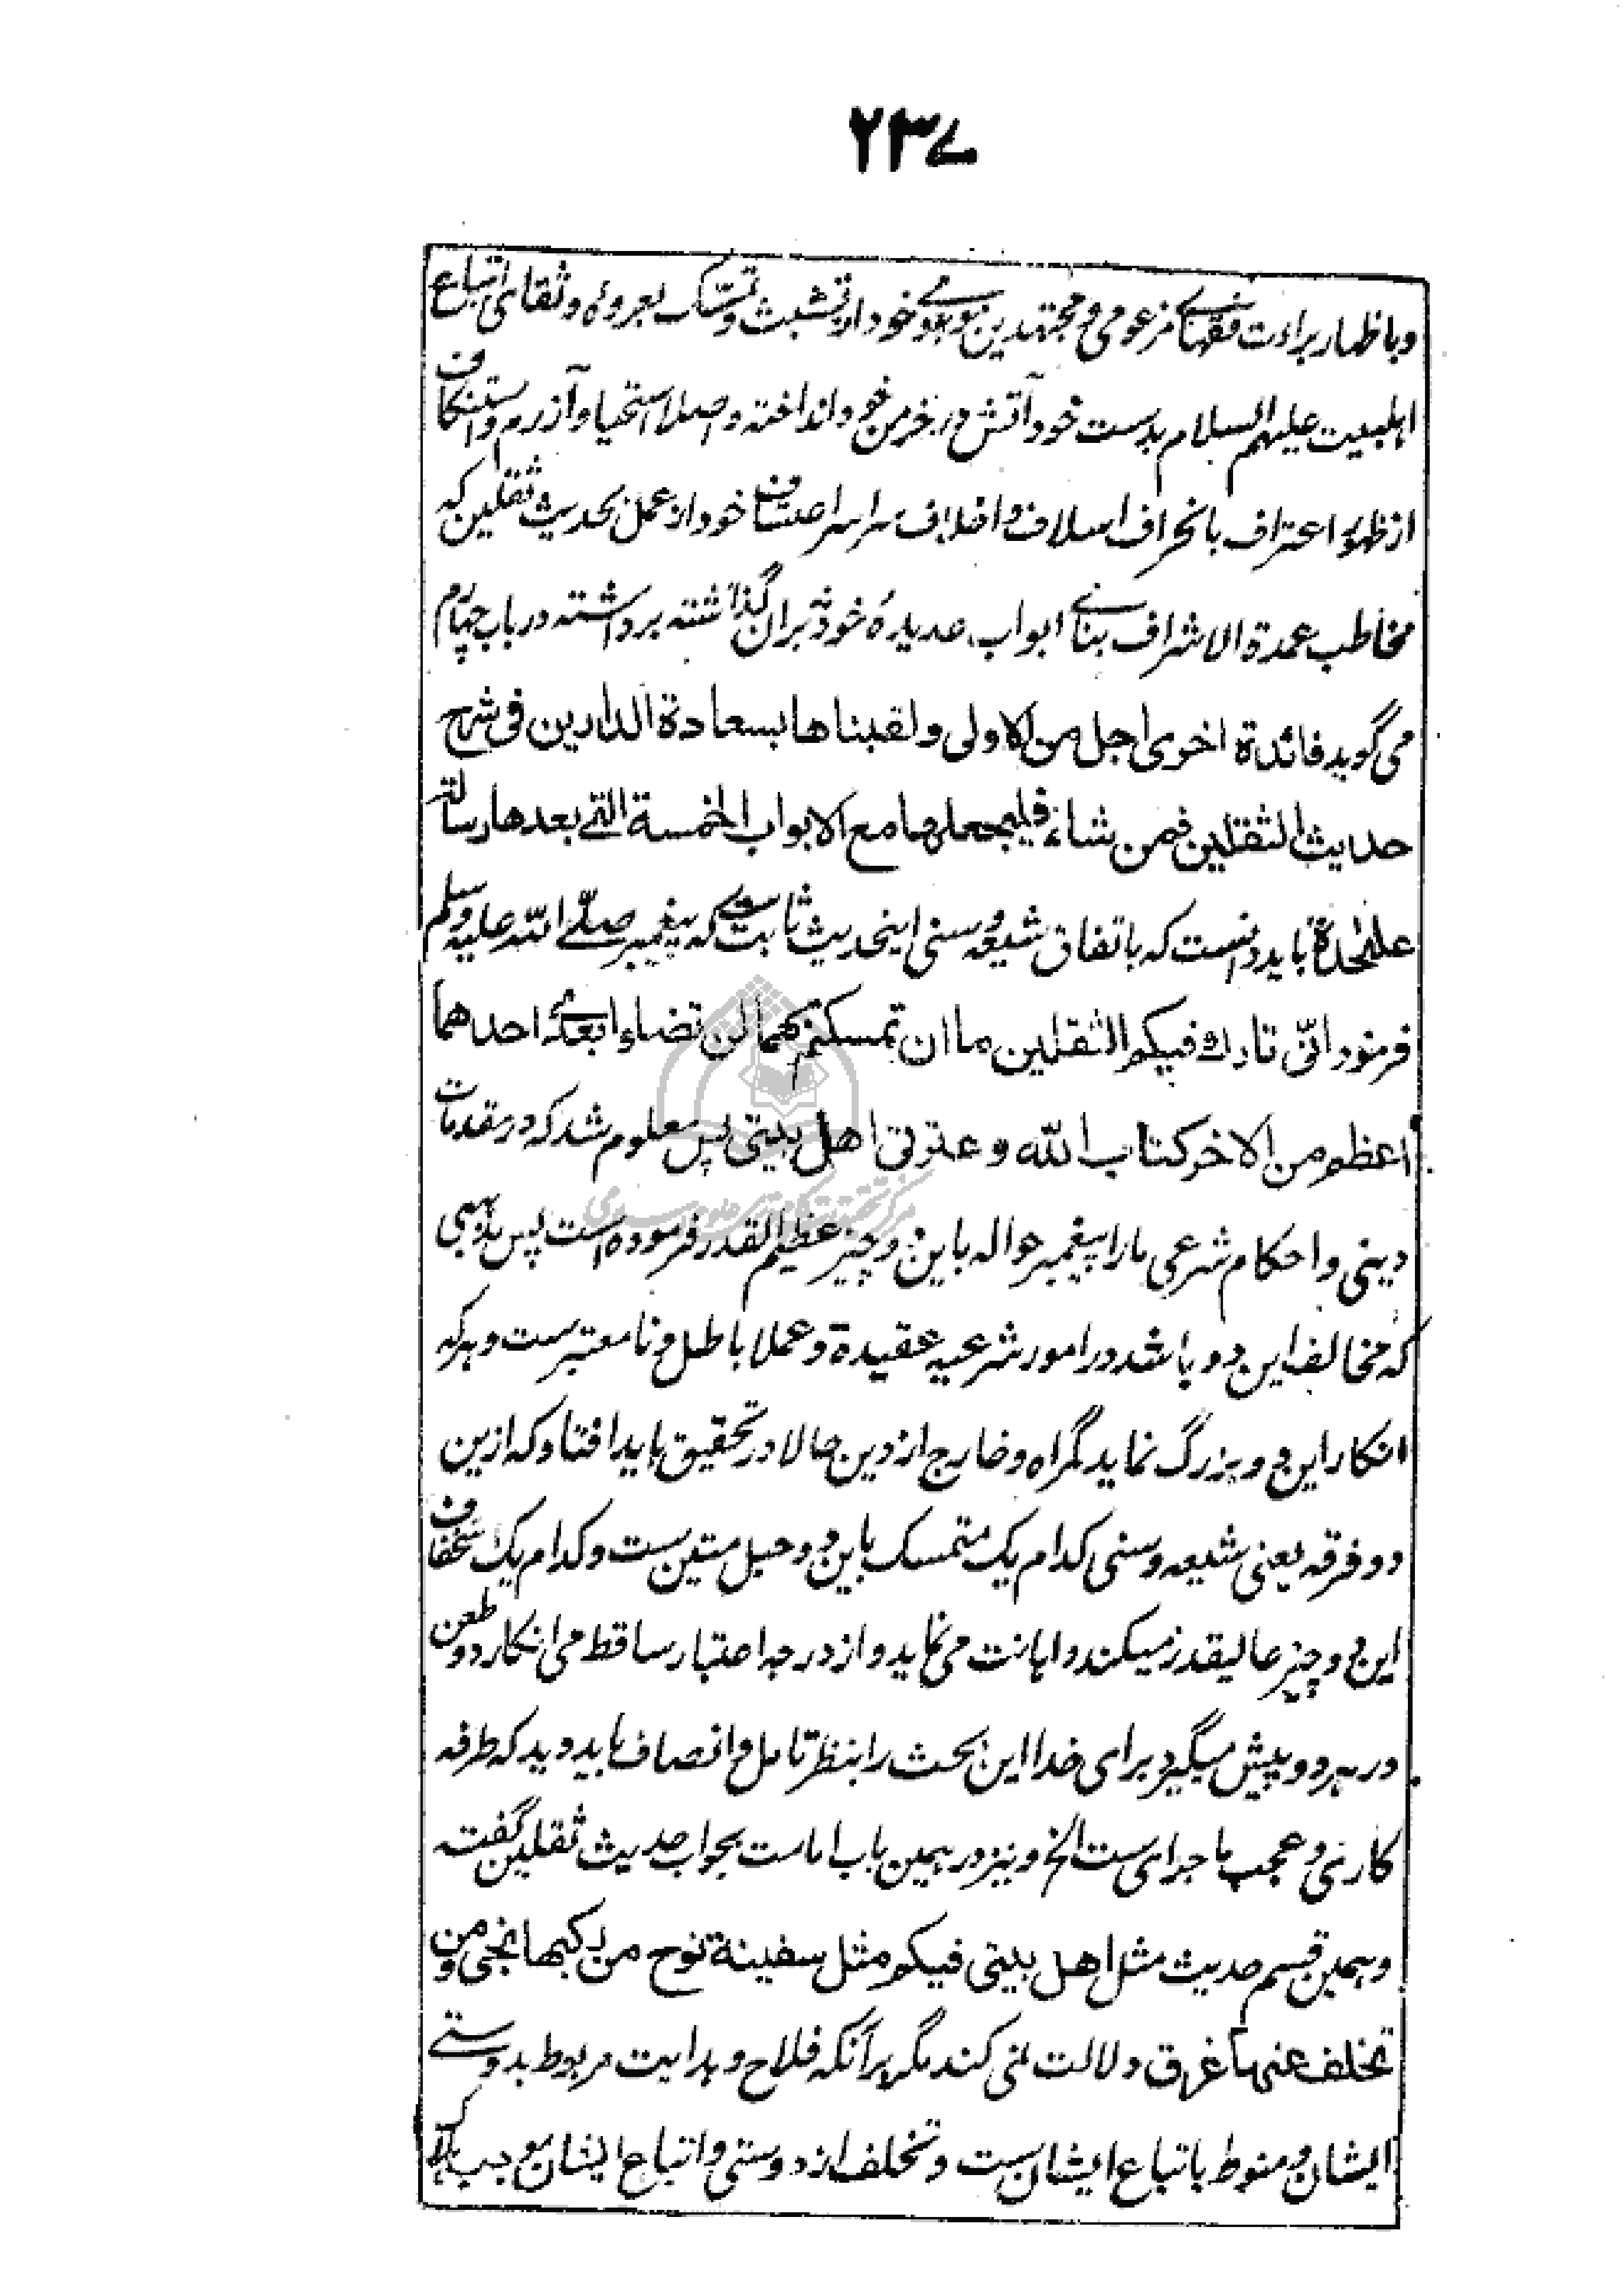 ۲۳۷
وباظهار براءت فقهای مزعومی و مجتهدین موهومی خود از تشبث و تمسک بعروهٔ وثقای اتباع
اهلبیت علیهم السلام بدست خود آتش در خرمن خود انداخته و اصلا استحیا و آزرم و استنکاف
از ظهور اعتراف بانحراف اسلاف و اخلاف سراسر اعتساف خود از عمل بحدیث ثقلین که
مخاطب عمدة الاشراف بنای ابواب عدیدهٔ خود بران گذاشته برداشته در باب چهارم
می گوید فائدة اخری اجل من الاولی ولقبناها بسعادة الدارین فی شرح
حدیث الثقلین فمن شاء فلیجعلها مع الابواب الخمسة التی بعدها رسالة
علیٰحدة باید دانست که باتفاق شیعه و سنی اینحدیث ثابت ست که پیغمبر صلی الله علیه وسلم
فرمود انّی تارک فیکم الثقلین ما ان تمسکتم بهما لن تضلوا بعدی احدهما
اعظم من الاخر کتاب الله وعترتی اهل بیتی پس معلوم شد که در مقدمات
دینی و احکام شرعی ما را پیغمبر حواله باین دو چیز عظیم القدر فرموده است پس مذهبی
که مخالف این دو باشد در امور شرعیه عقیدة و عملا باطل و نا معتبرست و هر که
انکار این دو بزرگ نماید گمراه و خارج از دین حالا در تحقیق باید افتاد که ازین
دو فرقه یعنی شیعه و سنی کدام یک متمسک باین دو حبل متین ست و کدام یک استخفاف
این دو چیز عالیقدر میکند و اهانت می نماید و از درجه اعتبار ساقط می انکارد و طعن
در هر دو پیش میگیرد برای خدا این بحث را بنظر تامل و انصاف باید دید که طرفه
کاری و عجب ماجرای ست الخ و نیز در همین باب امامت بجواب حدیث ثقلین گفته
و همین قسم حدیث مثل اهل بیتی فیکم مثل سفینة نوح من رکبها نجی و من
تخلف عنها غرق دلالت نمی کند مگر بر آنکه فلاح و هدایت مربوط بدوستی
ایشان و منوط باتباع ایشان ست و تخلف از دوستی و اتباع ایشان موجب هلاک